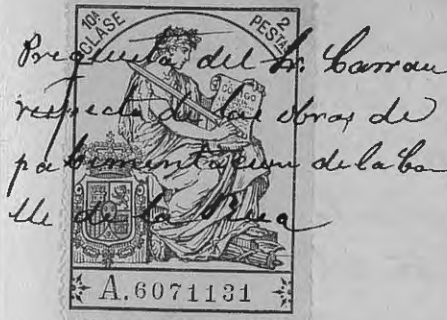 10ª CLASE
2 PESTAS
CÓDIGO
Pregunta del Sr. Carrau
respecto de las obras de
pabimentacion de la Ca-
lle de la Rua
A.6071131